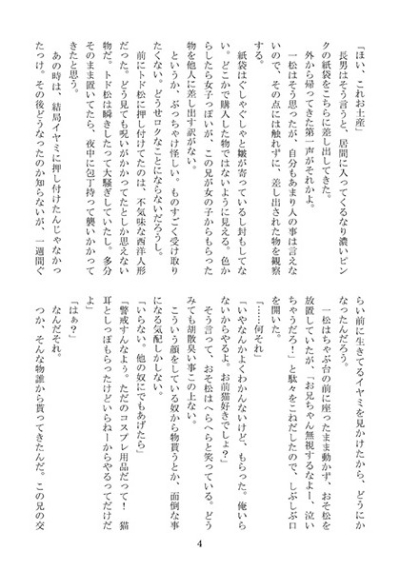 「ほい、これお土産」
　長男はそう言うと、居間に入ってくるなり濃いピン
クの紙袋をこちらに差し出してきた。
　外から帰ってきた第一声がそれかよ。
　一松はそう思ったが、自分もあまり人の事は言えな
いので、その点には触れずに、差し出された物を観察
する。
　紙袋はぐしゃぐしゃと皺が寄っているし封もしてな
い。どこかで購入した物ではないように見える。色か
らしたら女子っぽいが、この兄が女の子からもらった
物を他人に差し出す訳がない。
　というか、ぶっちゃけ怪しい。ものすごく受け取り
たくない。どうせロクなことにならないだろうし。
　前にトド松に押し付けてたのは、不気味な西洋人形
だった。どう見ても呪いがかかってたとしか思えない
物だ。トド松は瞬きしたって大騒ぎしていたし。多分
そのまま置いてたら、夜中に包丁持って襲いかかって
きたと思う。
　あの時は、結局イヤミに押し付けたんじゃなかっ
たっけ。その後どうなったのか知らないが、一週間ぐ
らい前に生きてるイヤミを見かけたから、どうにか
なったんだろう。
　一松はちゃぶ台の前に座ったまま動かず、おそ松を
放置していたが、「お兄ちゃん無視するなよー、泣い
ちゃうだろ！」と駄々をこねだしたので、しぶしぶ口
を開いた。
「……何それ」
「いやなんかよくわかんないけど、もらった。俺いら
ないからやるよ。お前猫好きでしょ？」
　そう言って、おそ松はへらへらと笑っている。どう
みても胡散臭い事この上ない。
　こういう顔をしている奴から物貰うとか、面倒な事
になる気配しかしない。
「いらない。他の奴にでもあげたら」
「警戒すんなよぅ。ただのコスプレ用品だって！　猫
耳としっぽもらったけどいらねーからやるってだけだ
よ」
「はぁ？」
　なんだそれ。
　つか、そんな物誰から貰ってきたんだ。この兄の交
4